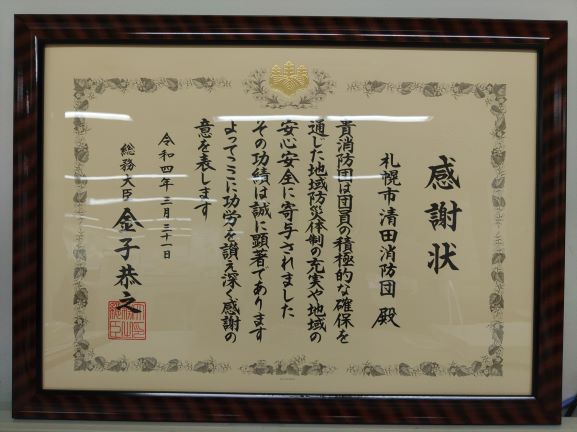 感謝状
札幌市清田消防団 殿
貴消防団は団員の積極的な確保を
通じた地域防災体制の充実や地域の
安心安全に寄与されました
その功績は誠に顕著であります
よってここに功労を讃え深く感謝の
意を表します
令和四年三月三十一日
総務大臣 金子恭之